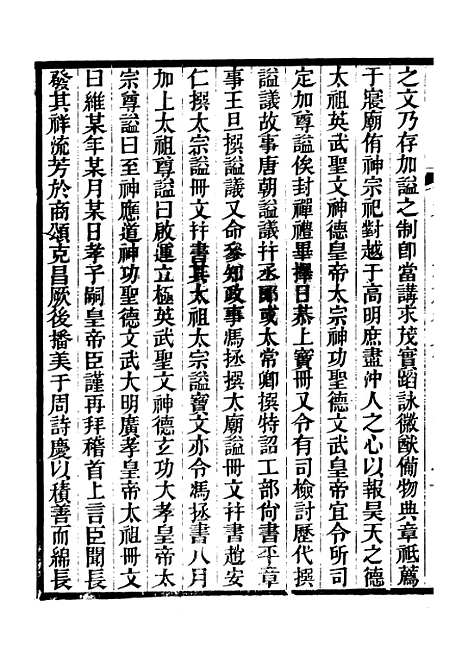 之文乃存加謚之制卽當講求茂實蹈詠徽猷備物典章祇薦
于寢廟侑神宗祀對越于高明庶盡沖人之心以報昊天之德
太祖英武聖文神德皇帝太宗神功聖德文武皇帝宜令所司
定加尊謚俟封禪禮畢擇日恭上寶冊又令有司檢討歷代撰
謚議故事唐朝謚議幷丞郎或太常卿撰特詔工部尚書平章
事王旦撰謚議又命參知政事馮拯撰太廟謚冊文幷書趙安
仁撰太宗謚冊文幷書其太祖太宗謚寶文亦令馮拯書八月
加上太祖尊謚曰啟運立極英武聖文神德玄功大孝皇帝太
宗尊謚曰至神應道神功聖德文武大明廣孝皇帝太祖冊文
曰維某年某月某日孝子嗣皇帝臣謹再拜稽首上言臣聞長
發其祥流芳於商頌克昌厥後播美于周詩慶以積善而綿長